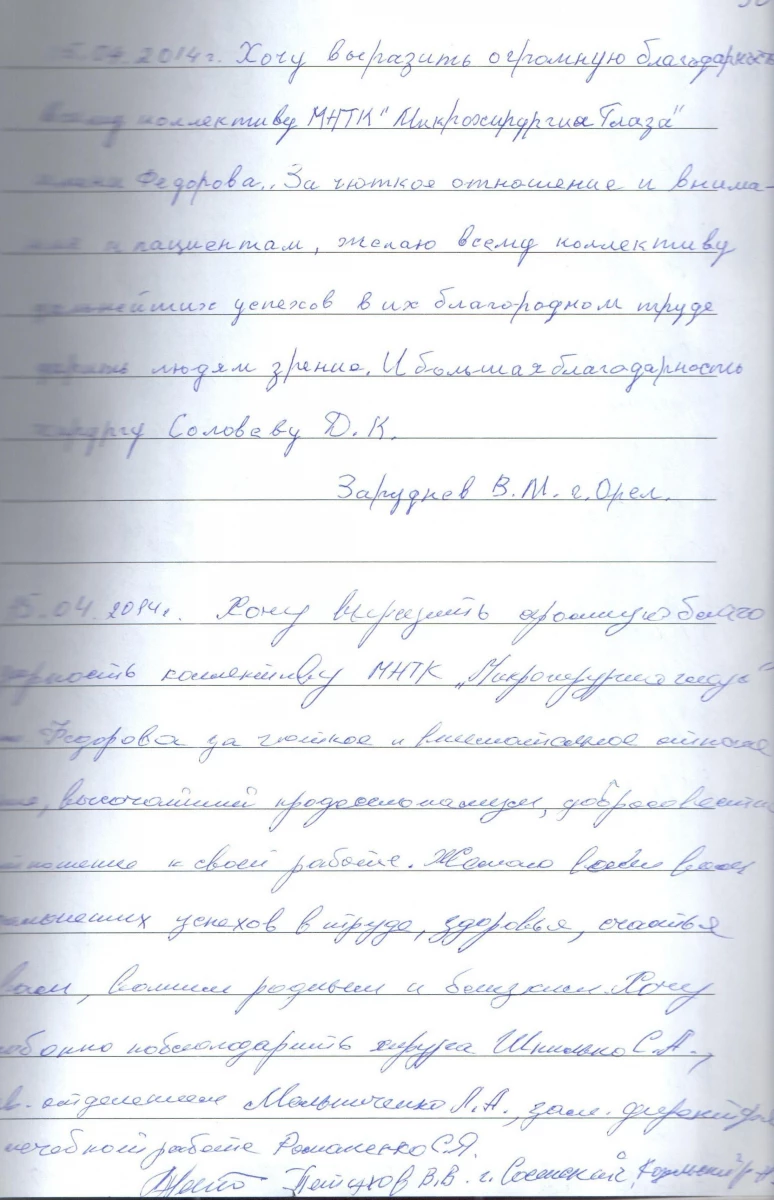 15.04.2014г. Хочу выразить огромную благодарность
всему коллективу МНТК "Микрохирургия Глаза"
имени Федорова. За чюткое отношение и внима-
ние к пациентам, желаю всему коллективу
дальнейших успехов в их благородном труде
дарить людям зрение. И большая благодарность
хирургу Соловьеву Д.К.
Заруднев В.М. г. Орел.
15.04.2014г. Хочу выразить огромную благо
дарность коллективу МНТК „Микрохирургия глаза"
Федорова за чюткое и внимательное отноше
ние, высочайший професионализм, добросовестное
отношение к своей работе. Желаю всем вам
дальнейших успехов в труде, здоровья, счастья
вам, вашим родным и близким. Хочу
особенно поблагодарить хирурга Шпилько С.А.,
зав. отделением Малышченко Л.А., зам. директора
лечебной работе Романенко С.Я.
Петухов В.В. г. Сосенский, Козельский р-н